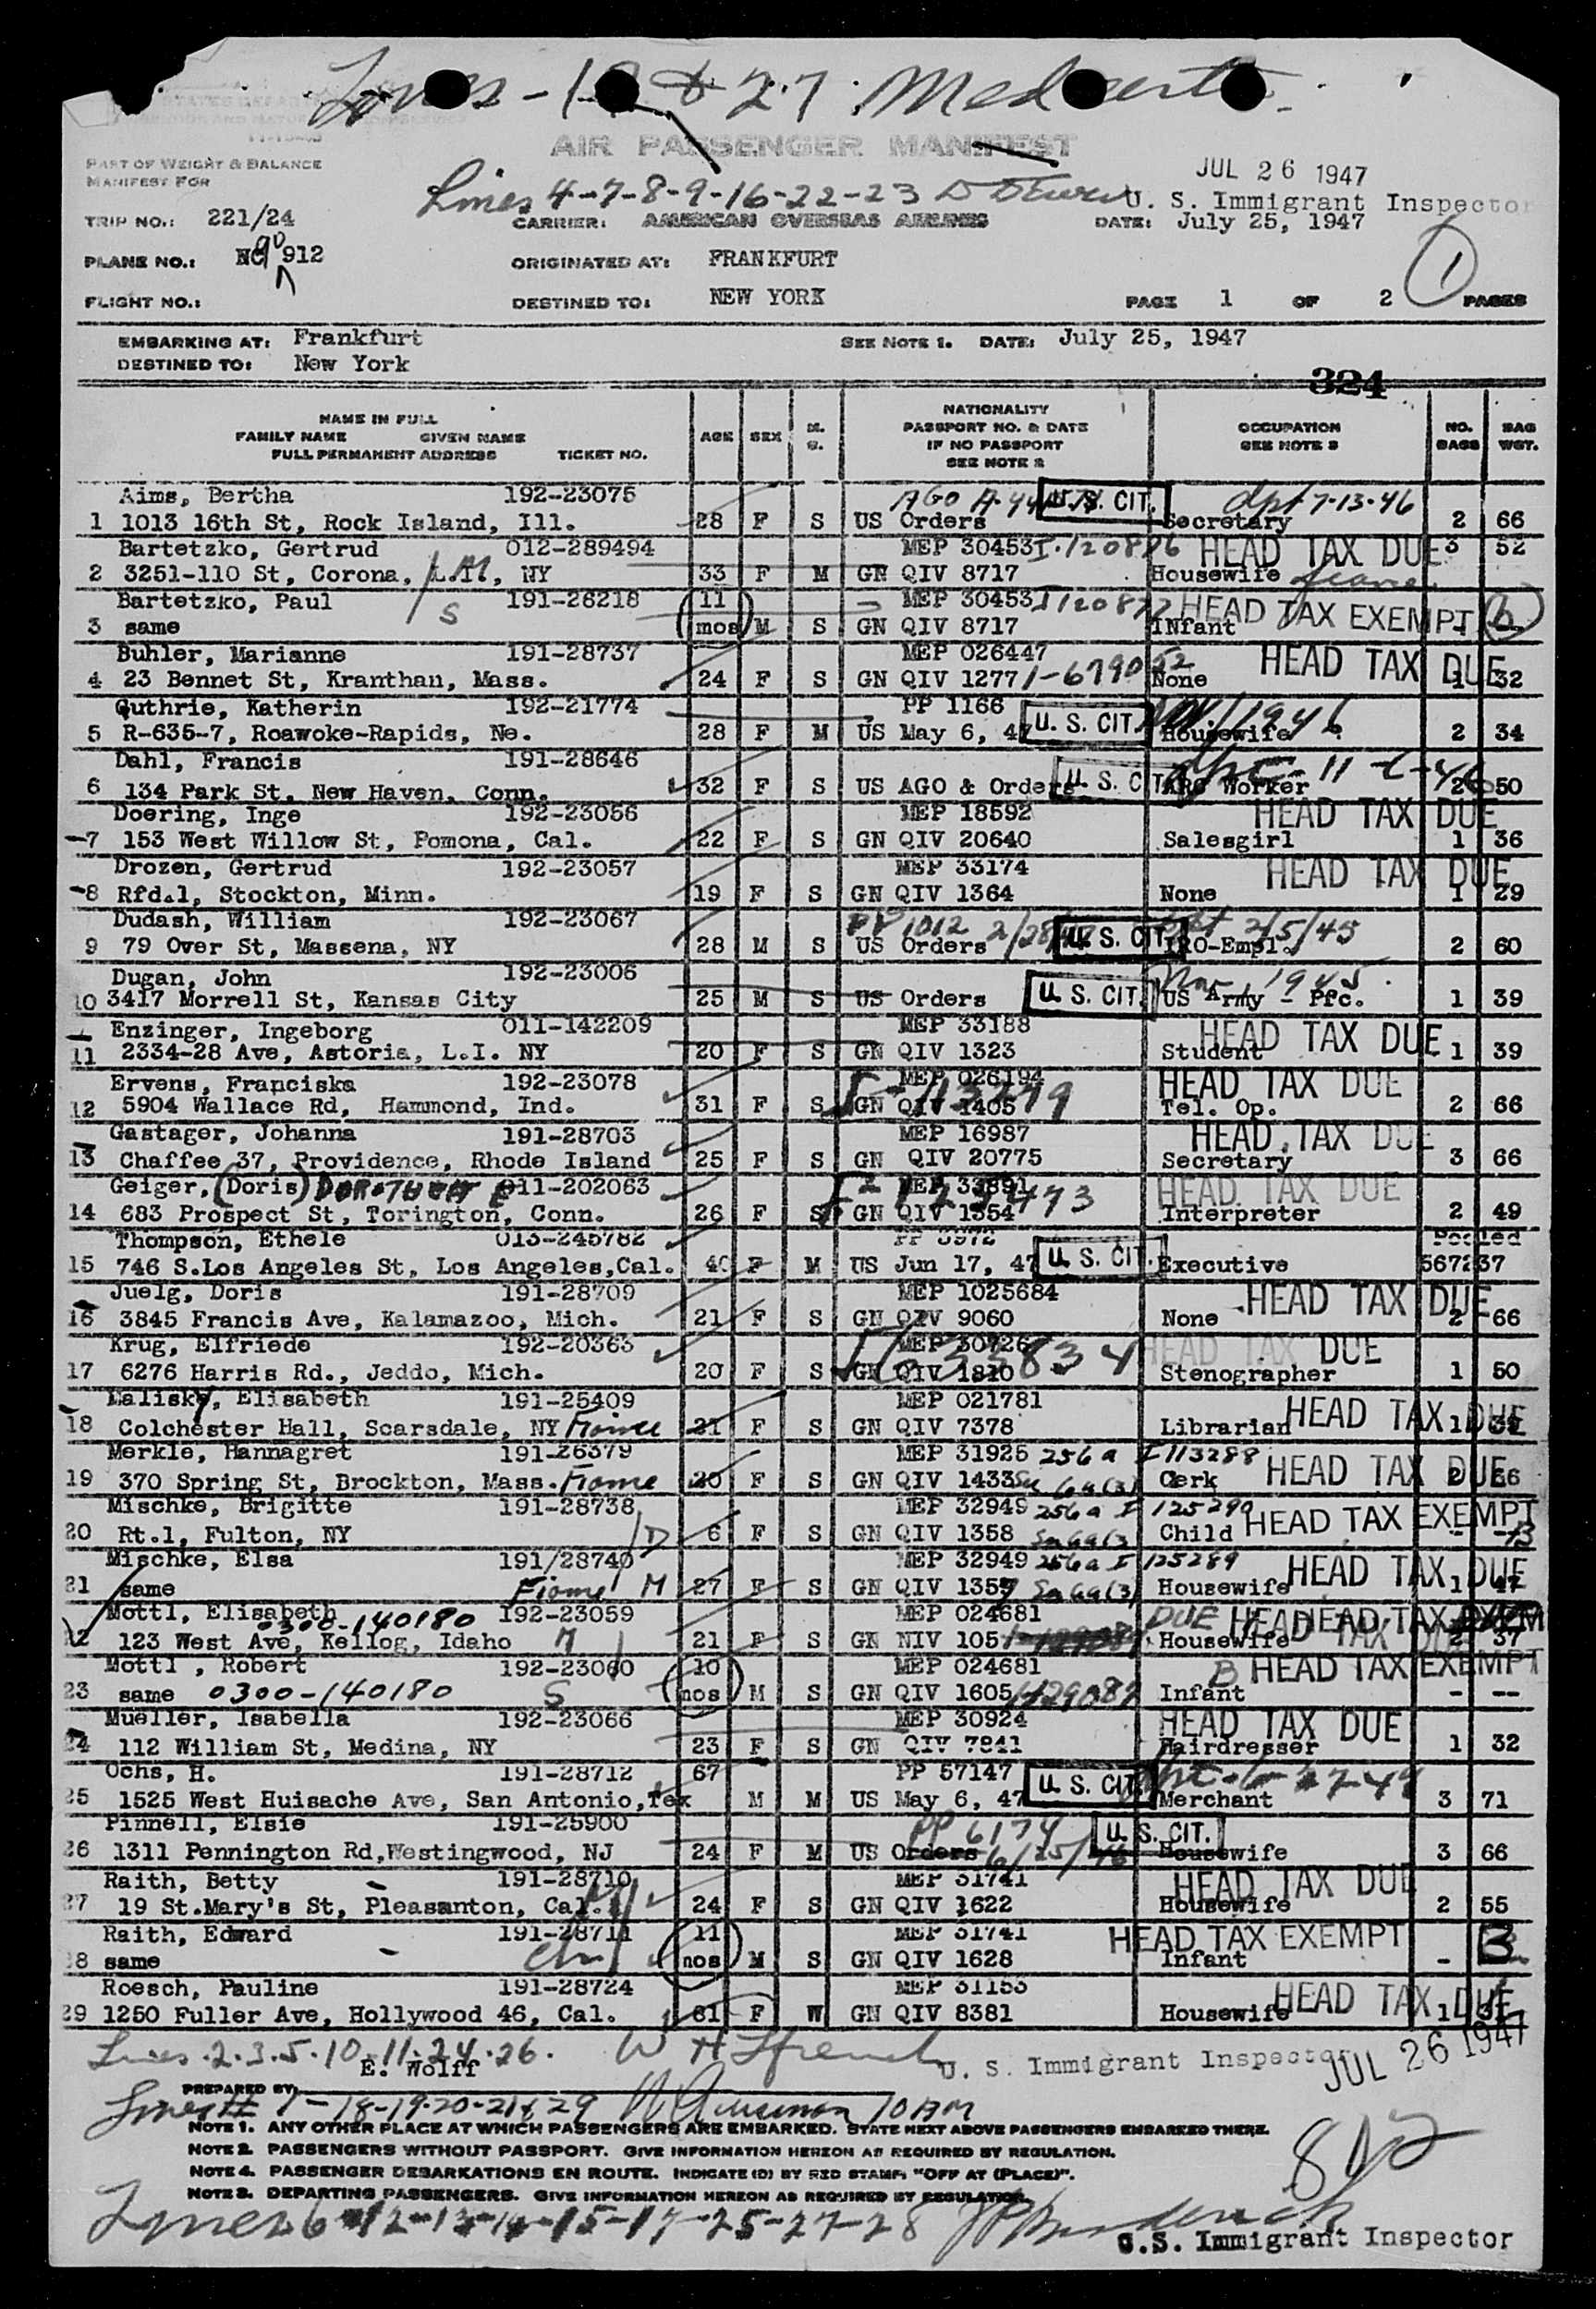 Lines - 19 & 27 Med certs.
AIR PASSENGER MANIFEST
PART OF WEIGHT & BALANCE
MANIFEST FOR
JUL 26 1947
Lines 4-7-8-9-16-22-23
U. S. Immigrant Inspector
TRIP NO.: 221/24 CARRIER: AMERICAN OVERSEAS AIRLINES DATE: July 25, 1947
PLANE NO.: NC 90 912 ORIGINATED AT: FRANKFURT 1
FLIGHT NO.: DESTINED TO: NEW YORK PAGE 1 OF 2 PAGES
EMBARKING AT: Frankfurt SEE NOTE 1. DATE: July 25, 1947
DESTINED TO: New York
324
NAME IN FULL
FAMILY NAME GIVEN NAME
FULL PERMANENT ADDRESS TICKET NO. AGE SEX M. S. NATIONALITY PASSPORT NO. & DATE IF NO PASSPORT SEE NOTE 2 OCCUPATION SEE NOTE 3 NO. BAGS BAG WGT.
Aims, Bertha 192-23075 AGO U. S. CIT. dpt 7-13-46
1 1013 16th St, Rock Island, Ill. 28 F S US Orders Secretary 2 66
Bartetzko, Gertrud 012-289494 MEP 30453 HEAD TAX DUE 3 52
2 3251-110 St, Corona, L.I., NY M 33 F M GN QIV 8717 Housewife
Bartetzko, Paul 191-26218 11 MEP 30453 HEAD TAX EXEMPT
3 same S mos M S GN QIV 8717 INfant
Buhler, Marianne 191-28737 MEP 026447 HEAD TAX DUE
4 23 Bennet St, Kranthan, Mass. 24 F S GN QIV 1277 None 1 32
Guthrie, Katherin 192-21774 PP 1166 U. S. CIT. 1946
5 R-635-7, Roawoke-Rapids, Ne. 28 F M US May 6, 47 Housewife 2 34
Dahl, Francis 191-28646 U. S. CIT.
6 134 Park St, New Haven, Conn. 32 F S US AGO & Orders ARC Worker 2 50
Doering, Inge 192-23056 MEP 18592 HEAD TAX DUE
7 153 West Willow St, Pomona, Cal. 22 F S GN QIV 20640 Salesgirl 1 36
Drozen, Gertrud 192-23057 MEP 33174 HEAD TAX DUE
8 Rfd.1, Stockton, Minn. 19 F S GN QIV 1364 None 1 29
Dudash, William 192-23067 PP 1012 U. S. CIT. 2/5/45
9 79 Over St, Massena, NY 28 M S US Orders IRO-Empl. 2 60
Dugan, John 192-23006 U. S. CIT. 1945
10 3417 Morrell St, Kansas City 25 M S US Orders US Army - Pfc. 1 39
Enzinger, Ingeborg 011-142209 MEP 33188 HEAD TAX DUE
11 2334-28 Ave, Astoria, L.I. NY 20 F S GN QIV 1323 Student 1 39
Ervens, Franciska 192-23078 MEP 026194 HEAD TAX DUE
12 5904 Wallace Rd, Hammond, Ind. 31 F S GN QIV 1405 Tel. Op. 2 66
Gastager, Johanna 191-28703 MEP 16987 HEAD TAX DUE
13 Chaffee 37, Providence, Rhode Island 25 F S GN QIV 20775 Secretary 3 66
Geiger, (Doris) 011-202063 MEP 33891 HEAD TAX DUE
14 683 Prospect St, Torington, Conn. 26 F S GN QIV 1354 Interpreter 2 49
Thompson, Ethele 013-245782 PP 5972 U. S. CIT. Pooled
15 746 S.Los Angeles St, Los Angeles,Cal. 40 F M US Jun 17, 47 Executive 567237
Juelg, Doris 191-28709 MEP 1025684 HEAD TAX DUE
16 3845 Francis Ave, Kalamazoo, Mich. 21 F S GN QIV 9060 None 2 66
Krug, Elfriede 192-20363 MEP 30726 HEAD TAX DUE
17 6276 Harris Rd., Jeddo, Mich. 20 F S GN QIV 1810 Stenographer 1 50
Lalisky, Elisabeth 191-25409 MEP 021781 HEAD TAX DUE
18 Colchester Hall, Scarsdale, NY 21 F S GN QIV 7378 Librarian 1
Merkle, Hannagret 191-26379 MEP 31925 256a I113288 HEAD TAX DUE
19 370 Spring St, Brockton, Mass. 20 F S GN QIV 1433 Cerk 2 66
Mischke, Brigitte 191-28738 MEP 32949 256a I 125290 HEAD TAX EXEMPT
20 Rt.1, Fulton, NY D 6 F S GN QIV 1358 Child
Mischke, Elsa 191/28740 MEP 32949 256a I 125289 HEAD TAX DUE
21 same M 27 F S GN QIV 1359 Housewife 1 47
Mottl, Elisabeth 0300-140180 192-23059 MEP 024681 DUE HEAD TAX
22 123 West Ave, Kellog, Idaho M 21 F S GN NIV 105 Housewife 2 37
Mottl , Robert 192-23060 10 MEP 024681 B HEAD TAX EXEMPT
23 same 0300-140180 S mos M S GN QIV 1605 Infant - --
Mueller, Isabella 192-23066 MEP 30924 HEAD TAX DUE
24 112 William St, Medina, NY 23 F S GN QIV 7841 Hairdresser 1 32
Ochs, H. 191-28712 67 PP 57147 U. S. CIT.
25 1525 West Huisache Ave, San Antonio,Tex M M US May 6, 47 Merchant 3 71
Pinnell, Elsie 191-25900 PP 6174 U. S. CIT.
26 1311 Pennington Rd,Westingwood, NJ 24 F M US Orders Housewife 3 66
Raith, Betty 191-28710 MEP 31741 HEAD TAX DUE
27 19 St.Mary's St, Pleasanton, Cal. 24 F S GN QIV 1622 Housewife 2 55
Raith, Edward 191-28711 11 MEP 31741 HEAD TAX EXEMPT B
28 same mos M S GN QIV 1628 Infant -
Roesch, Pauline 191-28724 MEP 31153 HEAD TAX DUE
29 1250 Fuller Ave, Hollywood 46, Cal. 61 F W GN QIV 8381 Housewife 1
Lines.2.3.5.10.11.24.26. U. S. Immigrant Inspector JUL 26 1947
E. Wolff
PREPARED BY:
18-19-20-21&29
NOTE 1. ANY OTHER PLACE AT WHICH PASSENGERS ARE EMBARKED. STATE NEXT ABOVE PASSENGERS EMBARKED THERE.
NOTE 2. PASSENGERS WITHOUT PASSPORT. GIVE INFORMATION HEREON AS REQUIRED BY REGULATION.
NOTE 4. PASSENGER DEBARKATIONS EN ROUTE. INDICATE (D) BY RED STAMP: "OFF AT (PLACE)".
NOTE 3. DEPARTING PASSENGERS. GIVE INFORMATION HEREON AS REQUIRED BY REGULATION.
Lines 6-12-13-14-15-17-25-27-28
U.S. Immigrant Inspector